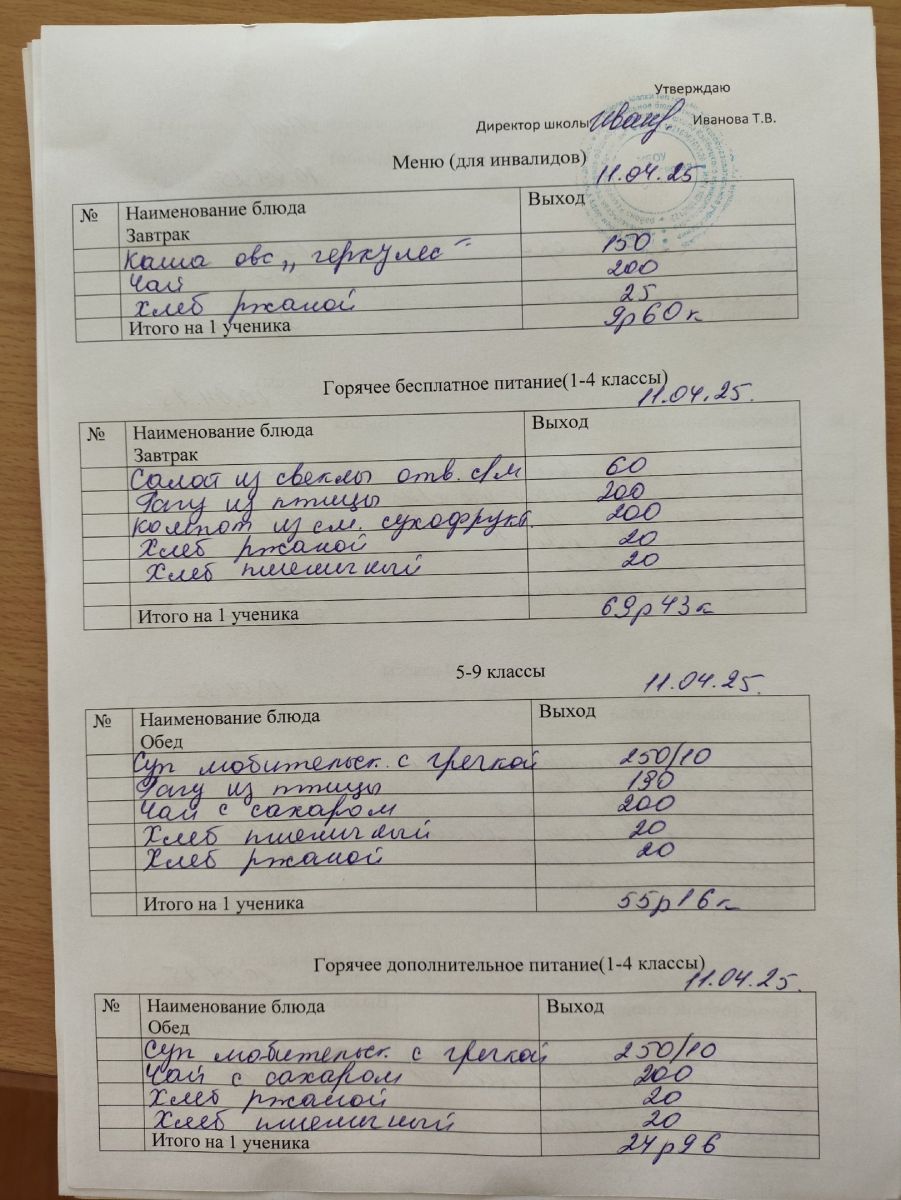 Утверждаю
Директор школы Иванова Т.В.
Меню (для инвалидов)
11.04.25
№ Наименование блюда Выход
Завтрак
Каша овс „геркулес" 150
Чай 200
Хлеб ржаной 25
Итого на 1 ученика 9р60к
Горячее бесплатное питание(1-4 классы)
11.04.25.
№ Наименование блюда Выход
Завтрак
Салат из свеклы отв. с/м 60
Рагу из птицы 200
Компот из см. сухофрукт. 200
Хлеб ржаной 20
Хлеб пшеничный 20
Итого на 1 ученика 69р43к
5-9 классы 11.04.25.
№ Наименование блюда Выход
Обед
Суп любительск. с гречкой 250/10
Рагу из птицы 190
Чай с сахаром 200
Хлеб пшеничный 20
Хлеб ржаной 20
Итого на 1 ученика 55р16к
Горячее дополнительное питание(1-4 классы)
11.04.25.
№ Наименование блюда Выход
Обед
Суп любительск. с гречкой 250/10
Чай с сахаром 200
Хлеб ржаной 20
Хлеб пшеничный 20
Итого на 1 ученика 24р96